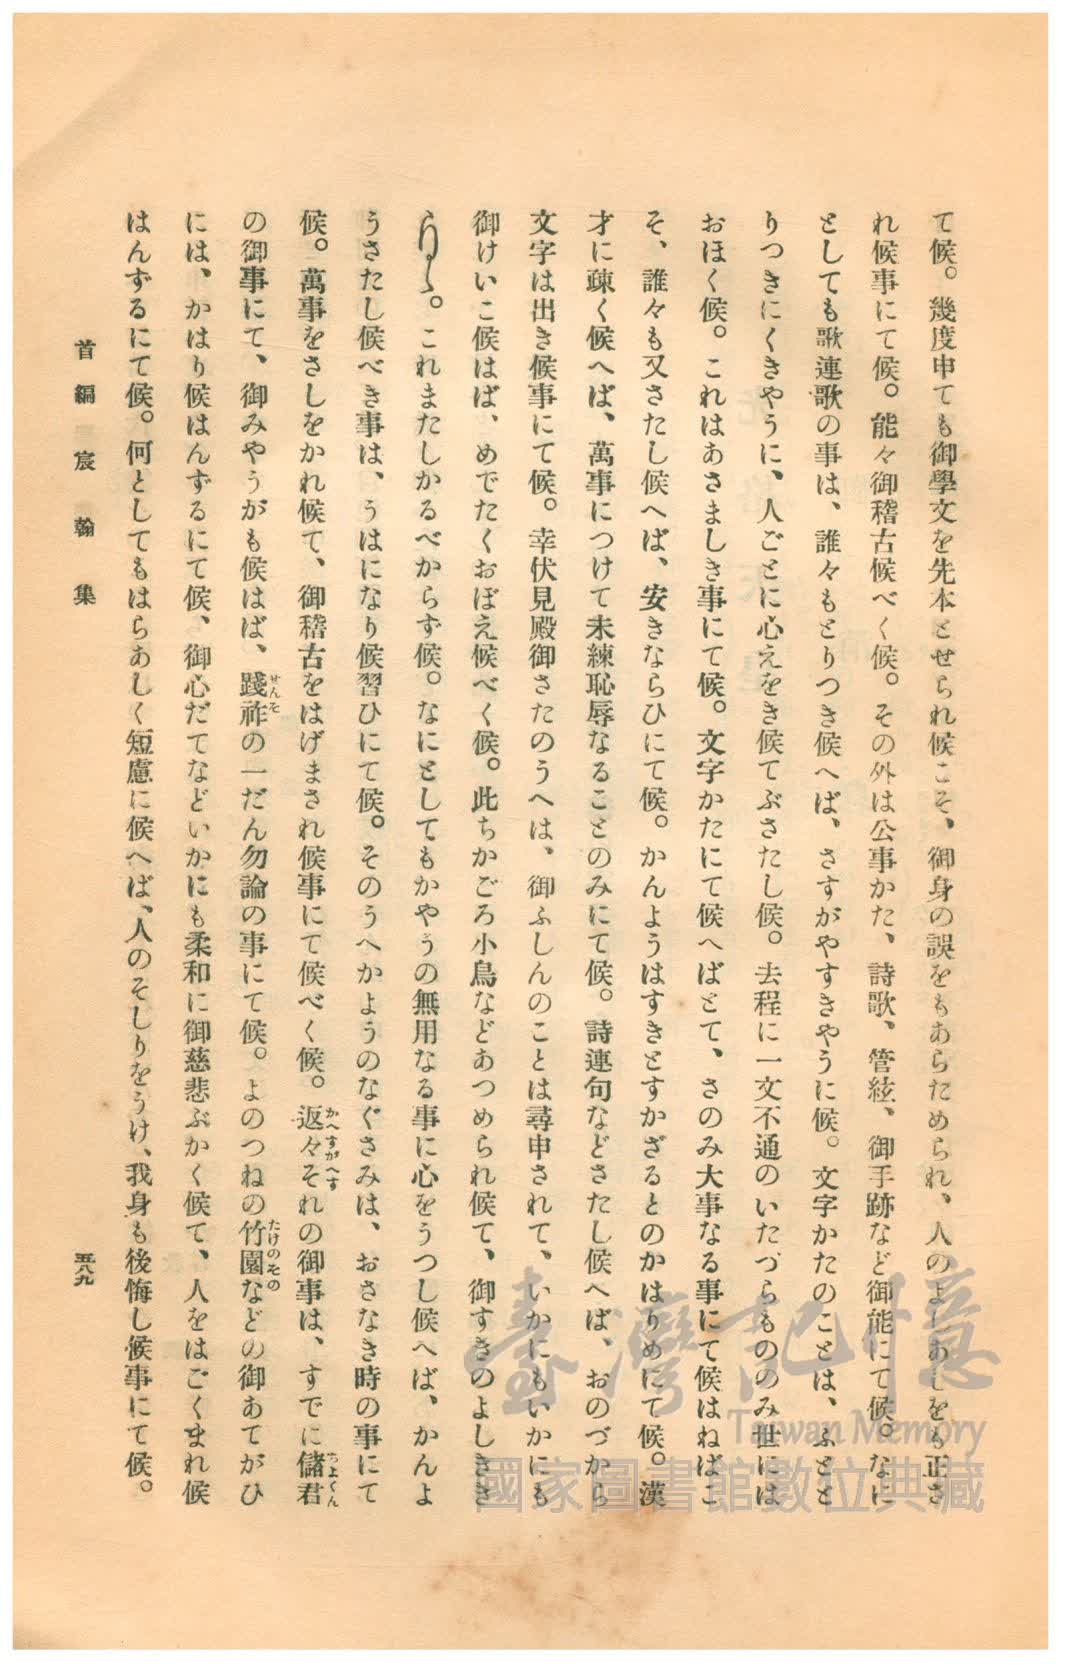 て候。幾度申ても御學文を先本とせられ候こそ、御身の誤をもあらためられ、人のよしあしをも正さ
れ候事にて候。能々御稽古候べく候。その外は公事かた、詩歌、管絃、御手跡など御能にて候。なに
としても歌連歌の事は、誰々もとりつき候へば、さすがやすきやうに候。文字かたのことは、ふとと
りつきにくきやうに、人ごとに心えをき候てぶさたし候。去程に一文不通のいたづらもののみ世には
おほく候。これはあさましき事にて候。文字かたにて候へばとて、さのみ大事なる事にて候はねばこ
そ、誰々も又さたし候へば、安きならひにて候。かんようはすきとすかざるとのかはりめにて候。漢
才に疎く候へば、萬事につけて未練恥辱なることのみにて候。詩連句などさたし候へば、おのづから
文字は出き候事にて候。幸伏見殿御さたのうへは、御ふしんのことは尋申されて、いかにもいかにも
御けいこ候はば、めでたくおぼえ候べく候。此ちかごろ小鳥などあつめられ候て、御すきのよしきき
。これまたしかるべからず候。なにとしてもかやうの無用なる事に心をうつし候へば、かんよ
うさたし候べき事は、うはになり候習ひにて候。そのうへかようのなぐさみは、おさなき時の事にて
候。萬事をさしをかれ候て、御稽古をはげまされ候事にて候べく候。返々それの御事は、すでに儲君
の御事にて、御みやうがも候はば、踐祚の一だん勿論の事にて候。よのつねの竹園などの御あてがひ
には、かはり候はんずるにて候、御心だてなどいかにも柔和に御慈悲ぶかく候て、人をはごくまれ候
はんずるにて候。何としてもはらあしく短慮に候へば、人のそしりをうけ、我身も後悔し候事にて候。
首編 宸翰集
五八九
臺灣記憶
Taiwan Memory
國家圖書館數位典藏